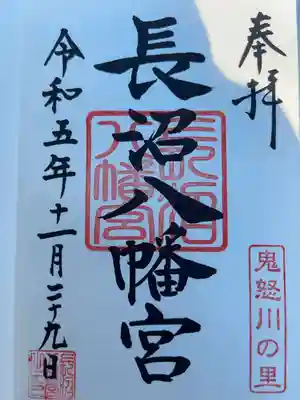 奉拝
長沼八幡宮
令和五年十一月二十九日
鬼怒川の里
長沼八幡宮